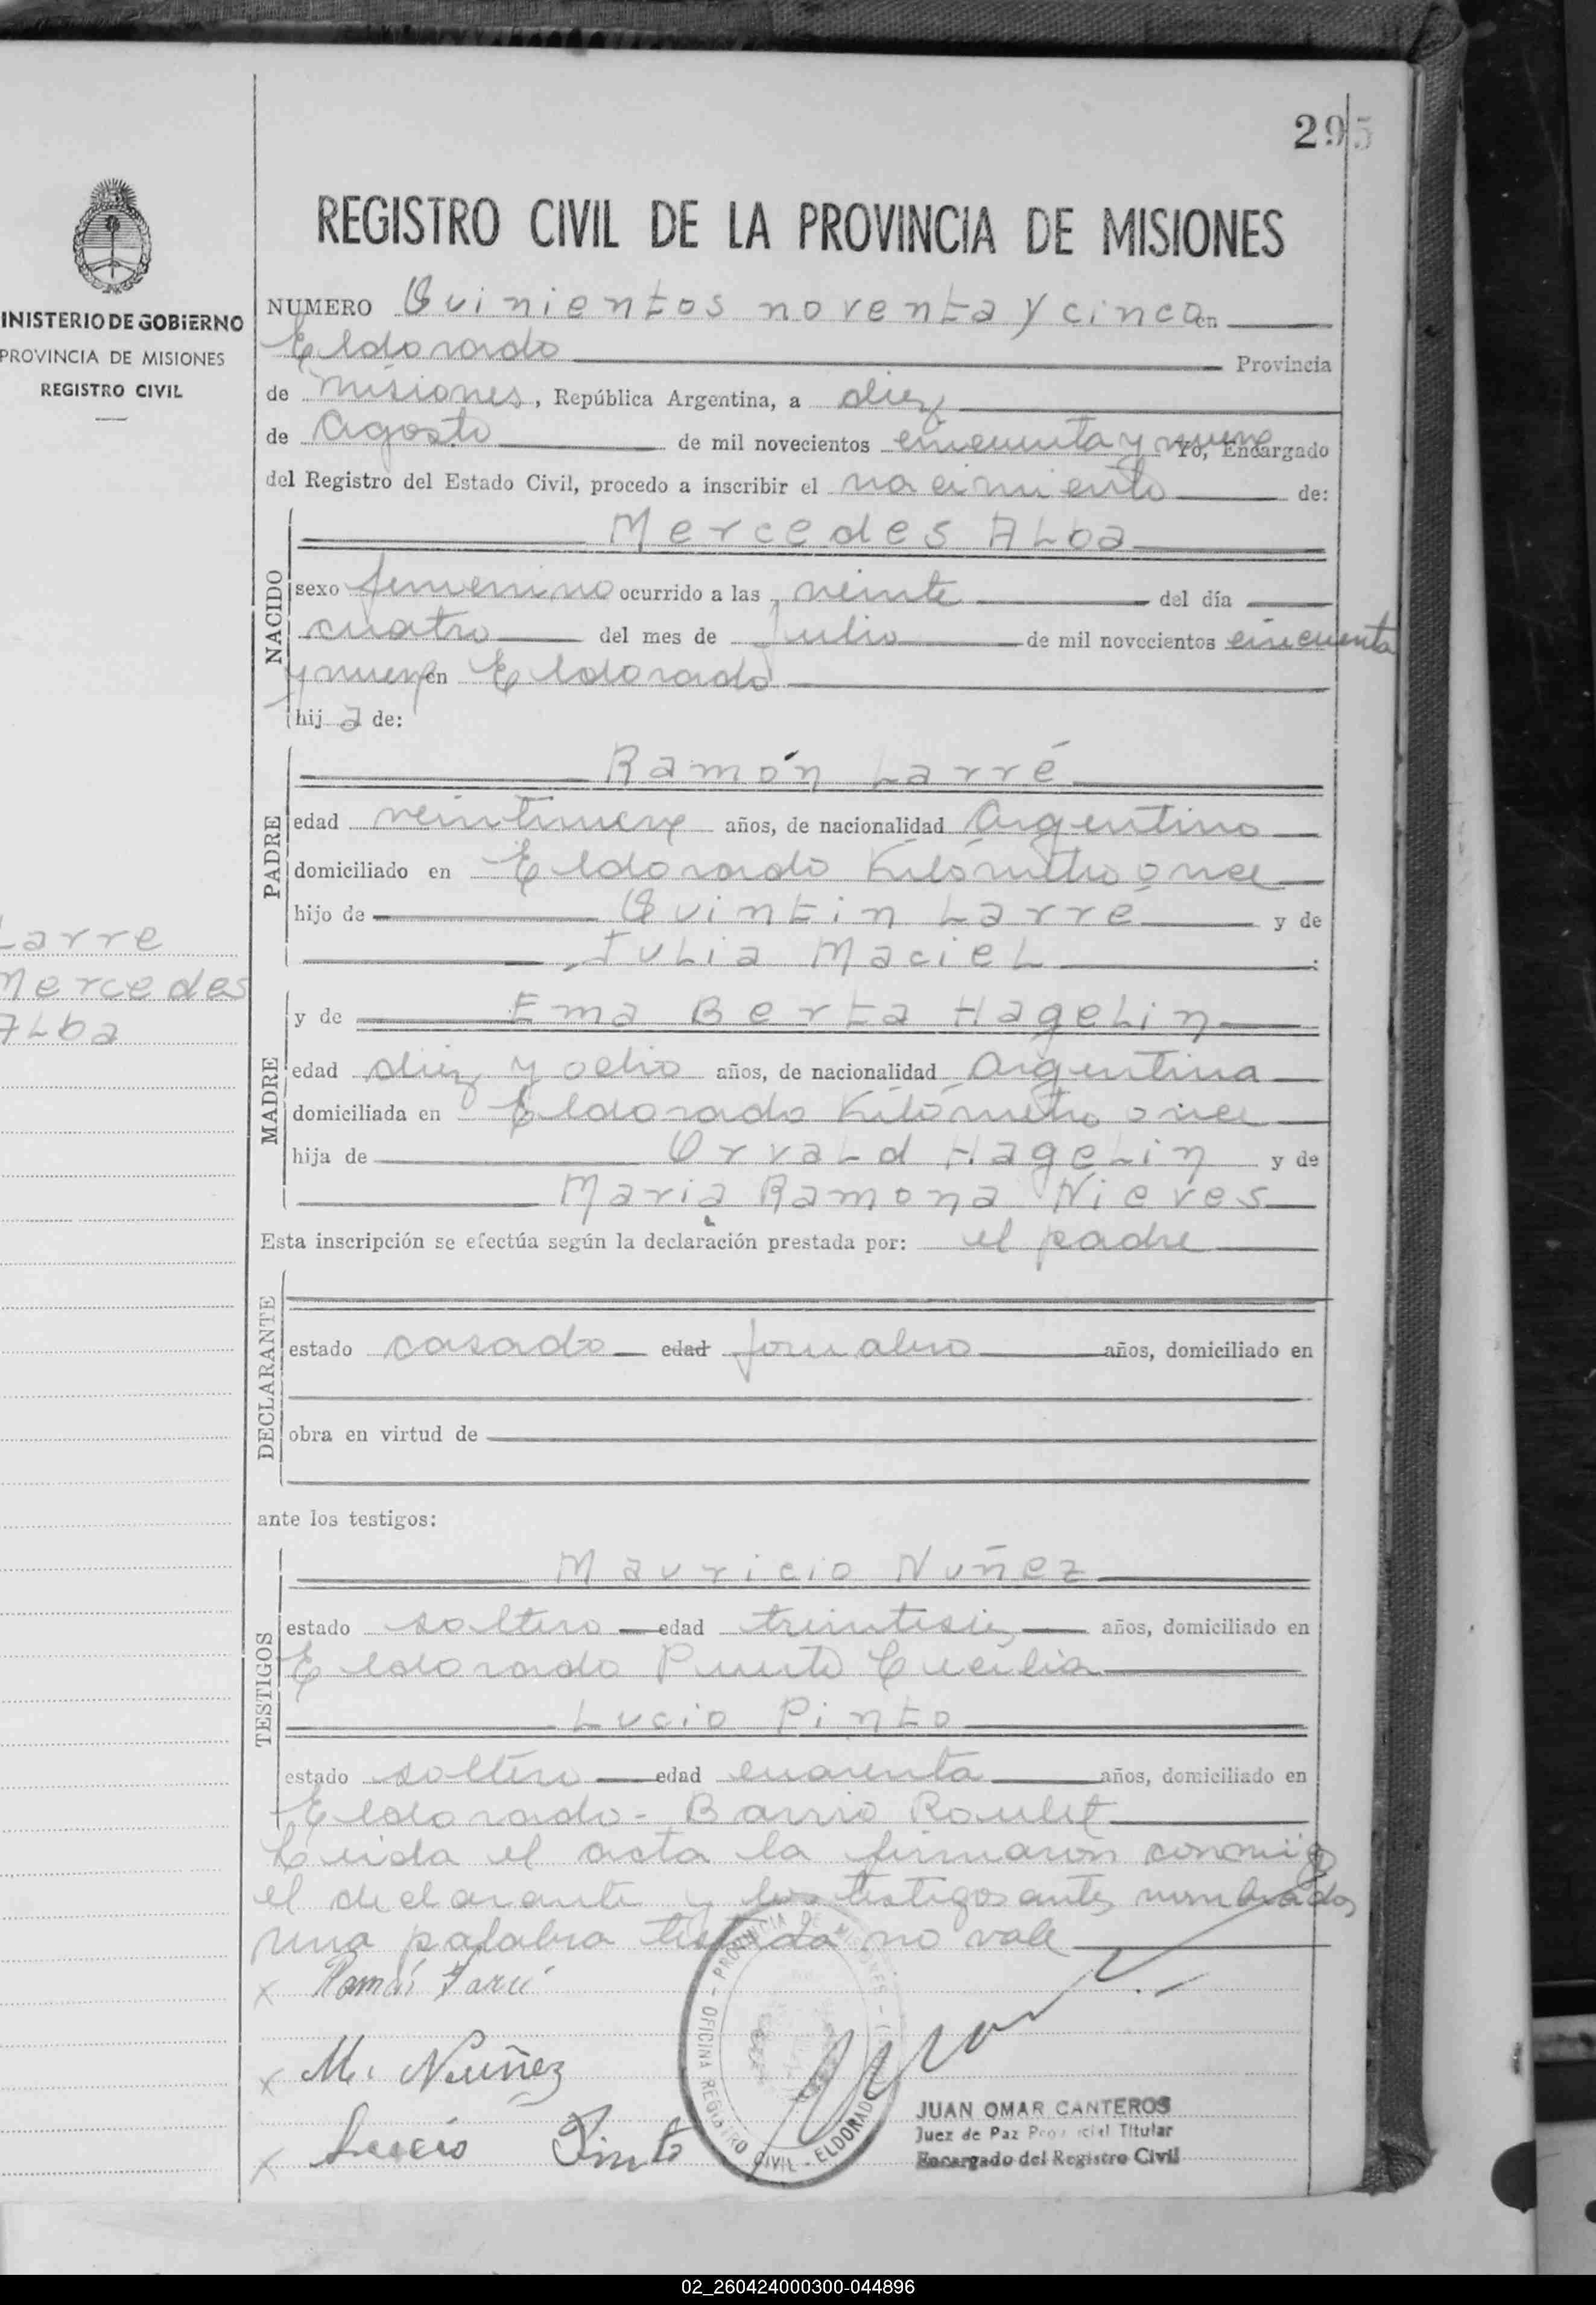 295
REGISTRO CIVIL DE LA PROVINCIA DE MISIONES
INISTERIO DE GOBIERNO
PROVINCIA DE MISIONES
REGISTRO CIVIL
NUMERO Quinientos noventa y cinco en
Eldorado Provincia
de Misiones, República Argentina, a diez
de Agosto de mil novecientos cincuenta y nueve Yo, Encargado
del Registro del Estado Civil, procedo a inscribir el nacimiento de:
NACIDO
Mercedes Alba
sexo femenino ocurrido a las veinte del día
cuatro del mes de Julio de mil novecientos cincuenta
y nueve en Eldorado
hija de:
PADRE
Ramón Larré
edad veintinueve años, de nacionalidad Argentino
domiciliado en Eldorado Kilómetro once
hijo de Quintin Larré y de
Julia Maciel
Larre
Mercedes
Alba
MADRE
y de Ema Berta Hagelin
edad diez y ocho años, de nacionalidad Argentina
domiciliada en Eldorado Kilómetro once
hija de Orvald Hagelin y de
Maria Ramona Nieves
Esta inscripción se efectúa según la declaración prestada por: el padre
DECLARANTE
estado casado edad jornalero años, domiciliado en
obra en virtud de
ante los testigos:
TESTIGOS
Mauricio Nuñez
estado soltero edad treintiseis años, domiciliado en
Eldorado Puerto Cecilia
Lucio Pinto
estado soltero edad cuarenta años, domiciliado en
Eldorado - Barrio Roulet
Leida el acta la firmaron conmigo
el declarante y los testigos antes nombrados
una palabra testada no vale
x Ramón Larré
x M. Nuñez
x Lucio Pinto
OFICINA REGISTRO CIVIL - ELDORADO - PROVINCIA DE MISIONES
JUAN OMAR CANTEROS
Juez de Paz Provincial Titular
Encargado del Registro Civil
02_260424000300-044896